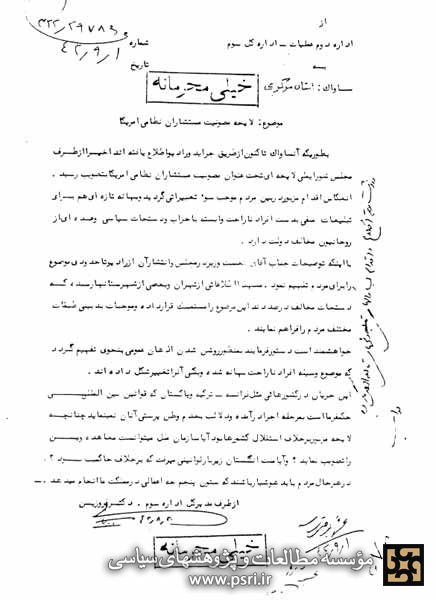 از
اداره دوم عملیات - اداره کل سوم
شماره ۳۲۲/۲۹۷۸۳
به
تاریخ ۴۳/۹/۱
ساواک: استان مرکزی
خیلی محرمانه
موضوع: لایحه مصونیت مستشاران نظامی امریکا
بطوریکه آنساواک تاکنون از طریق جراید و رادیو اطلاع یافته اند اخیرا از طرف
مجلس شورایملی لایحه ای تحت عنوان مصونیت مستشاران نظامی امریکا بتصویب رسید.
انعکاس اقدام مزبور در بین مردم موجب سوء تعبیراتی گردید و بهانه تازه ای هم برای
تبلیغات منفی بدست افراد ناراحت وابسته باحزاب و دستجات سیاسی و عده ای از
روحانیون مخالف دولت داد.
با اینکه توضیحات جناب آقای نخست وزیر در مجلس و انتشار آن از رادیو تا حدودی موضوع
را برای مردم تفهیم نمود. معهذا اطلاعاتی از تهران و بعضی از شهرستانها رسیده که
دستجات مخالف در صددند این موضوع را مستمسک قرار داده و موجبات بدبینی طبقات
مختلف مردم را فراهم نمایند.
خواهشمند است دستور فرمایند بمنظور روشن شدن اذهان عمومی بنحوی تفهیم گردد
که موضوع وسیله افراد ناراحت بهانه شده و بکلی آنرا تغییر شکل داده اند.
این جریان در کشورهائی مثل فرانسه - ترکیه و پاکستان که قوانین بین المللی
حکمفرما است بمرحله اجرا درآمده و دلالت بعدم وطن پرستی آنان نمینماید چنانچه
لایحه مزبور برخلاف استقلال کشورها بود آیا سازمان ملل میتوانست معاهده وین
را تصویب نماید؟ و آیا ملت انگلستان زیر بار قوانینی میرفت که برخلاف حاکمیت بود؟.
در هر حال مردم باید هوشیار باشند که ستون پنجم چه اعمالی در مملکت ما انجام میدهد.
از طرف مدیر کل اداره سوم.
خیلی محرمانه
مؤسسه مطالعات و پژوهشهای سیاسی
www.psri.ir